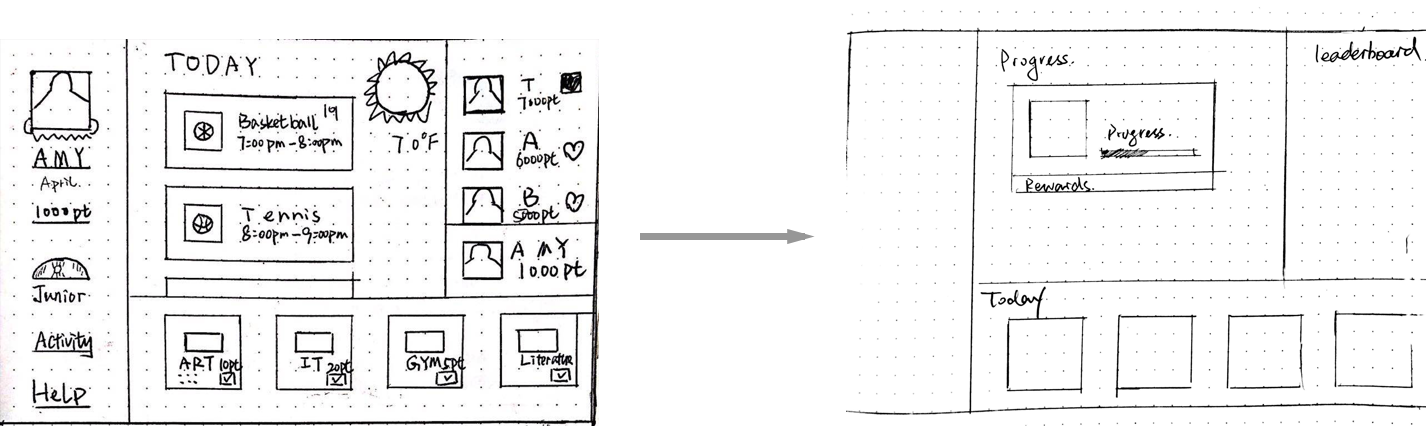 AMY
April.
1000pt
Junior
Activity
Help
TODAY
Basketball 19
7:00pm-8:00pm
Tennis
8:00pm-9:00pm
7.0°F
T
7000pt
A
6000pt
B
5000pt
AMY
1000pt
ART 10pt
IT 20pt
GYM 5pt
Literature
Progress.
Progress.
Rewards.
leaderboard
Today